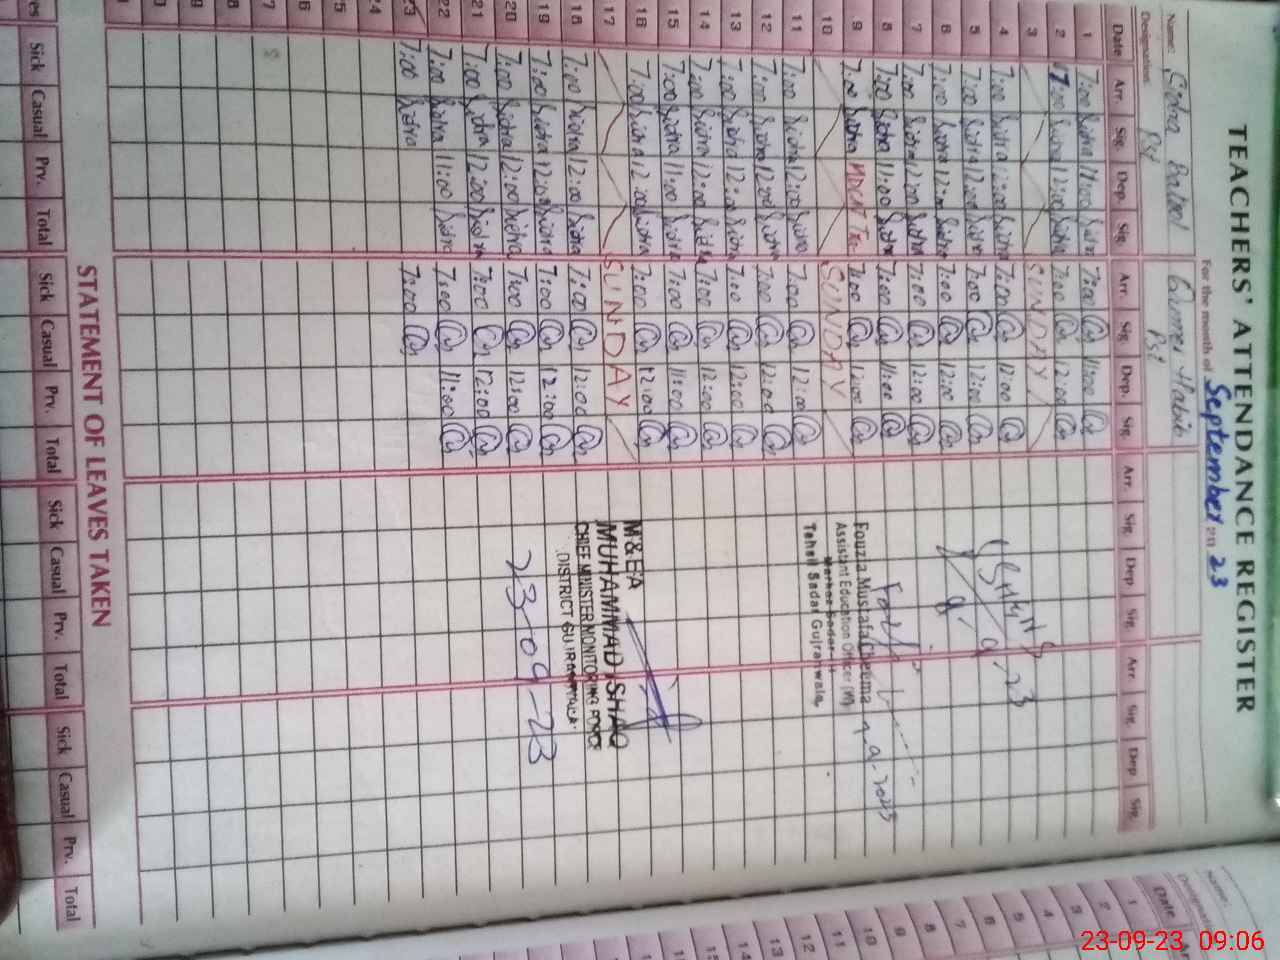 TEACHERS' ATTENDANCE REGISTER
For the month of September 2023
Name: Sidra Batool
Designation:
Date Arr. Sig. Dep. Sig. Arr. Sig. Dep. Sig. Arr. Sig. Dep. Sig. Arr. Sig. Dep. Sig.
1 7:00 Sidra 11:00 Sidra 7:00 11:00
2 7:00 Sidra 12:00 Sidra 7:00 12:00
3 SUNDAY
4 7:00 Sidra 12:00 Sidra 7:00 12:00
5 7:00 Sidra 12:00 Sidra 7:00 12:00
6 7:00 Sidra 12:00 Sidra 7:00 12:00
7 7:00 Sidra 12:00 Sidra 7:00 12:00
8 7:00 Sidra 11:00 Sidra 7:00 11:00
9 7:00 Sidra MDCAT 7:00 12:00
10 SUNDAY
11 7:00 Sidra 12:00 Sidra 7:00 12:00
12 7:00 Sidra 12:00 Sidra 7:00 12:00
13 7:00 Sidra 12:00 Sidra 7:00 12:00
14 7:00 Sidra 12:00 Sidra 7:00 12:00
15 7:00 Sidra 11:00 Sidra 7:00 11:00
16 7:00 Sidra 12:00 Sidra 7:00 12:00
17 SUNDAY
18 7:00 Sidra 12:00 Sidra 7:00 12:00
19 7:00 Sidra 12:00 Sidra 7:00 12:00
20 7:00 Sidra 12:00 Sidra 7:00 12:00
21 7:00 Sidra 12:00 Sidra 7:00 12:00
22 7:00 Sidra 11:00 Sidra 7:00 11:00
23 7:00 Sidra 7:00
24
Fouzia Mustafa Cheema
Assistant Education Officer (W)
Markaz Sadar
Tehsil Sadar Gujranwala
M&EA
MUHAMMAD ISHAQ
CHIEF MINISTER MONITORING FORCE
DISTRICT GUJRANWALA
23-09-23
STATEMENT OF LEAVES TAKEN
Sick Casual Prv. Total Sick Casual Prv. Total Sick Casual Prv. Total Sick Casual Prv. Total
Name:
Designation
Date
1
2
3
4
5
6
7
8
9
10
11
12
13
23-09-23 09:06